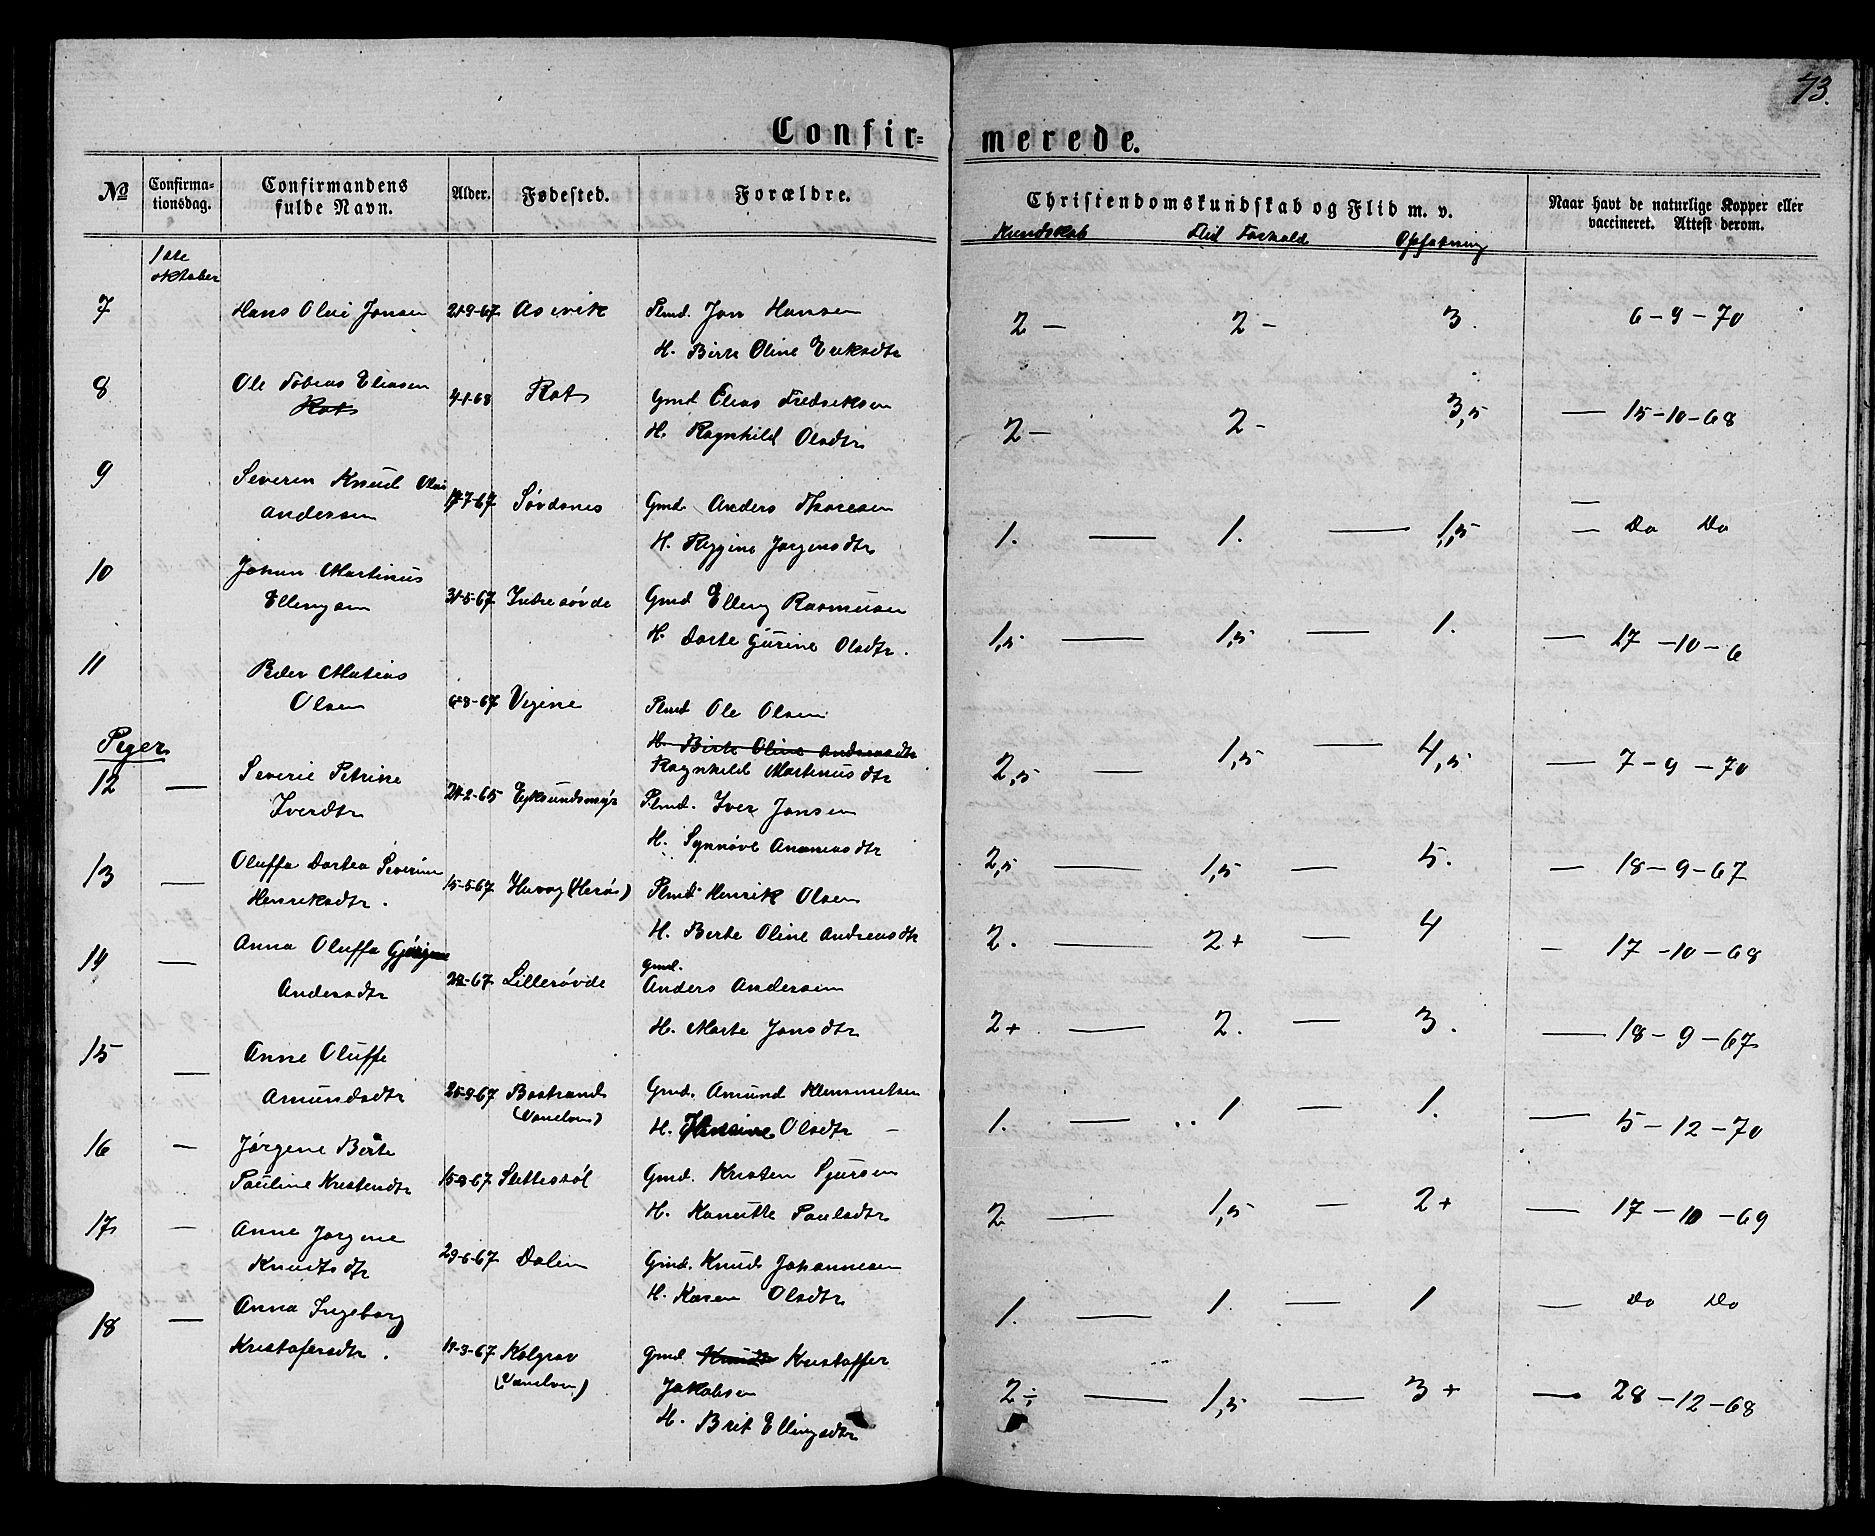 73.
Confir=
merede.
No
Confirma-
tionsdag.
Confirmandens
fulde Navn.
Alder.
Fødested.
Forældre.
Christendomskundskab og Flid m. v.
Naar havt de naturlige Kopper eller
vaccineret. Attest derom.
Kundskab Flid Forhold Opfatning
1ste
oktober
7 Hans Olai Jonsen 21-9-67 Aasvik Plmd. Jon Hansen 2 – 2 – 3. 6 – 9 – 70
H. Birte Oline Eriksdtr
8 Ole Tobias Eliasen 4-1-68 Rot Gmd Elias Fredriksen 2 – 2 – 3,5 — 15-10-68
Rot H. Ragnhild Olsdtr
9 Severin Knud Olai 17-7-67 Søvdsnes Gmd. Anders Thoresen 1. — 1. — 1,5 — Do Do
Andersen H. Reggine Jørgensdtr
10 Johan Martinus
Ellingsen 31-5-67 Indresøvde Gmd Elling Rasmusen 1,5 — 1,5 — 1. — 17 – 10 – 6
H. Dorte Gurine Olsdtr.
11 Peder Matias
Olsen 6-8-67 Vejene Plmd Ole Olsen 2,5 — 1,5 — 4,5 — 7 – 9 – 70
H. Birte Oline Andreasdtr
Ragnhild Martinusdtr
Piger
12 — Severie Petrine 21-2-65 Eyksundsmyr Plmd. Iver Jonsen 2,5 — 1,5 — 5. — 18 – 9 – 67
Iversdtr H. Synnøve Andreasdtr
13 — Oluffa Dortea Severine
Henriksdtr. 15-5-67 (Herø) Plmd Henrik Olsen 2. — 2+ — 4 — 17 – 10 – 68
H. Berte Oline Andreasdtr
14 — Anna Oluffa
Andersdtr -67 Lillesøvde gmd.
Anders Andersen 2+ — 2. — 3. — 18 – 9 – 67
H. Marte Jonsdtr
15 — Anne Oluffe
Amundsdtr 25-9-67 Bostrand Gmd. Amund Klemmetsen 1. — 1 — 1. — 5 – 12 – 70
(Vanelven) H. Olsdtr –
16 — Jørgene Berte
Pauline Kristendtr 15-9-67 Slettestøl Gmd. Kristen Sjursen 2 — 1,5 — 2+ — 17 – 10 – 69
H. Kanutte Paulsdtr
17 — Anne Jørgine
Knudsdtr 29-6-67 Dalen Gmd. Knud Johannesen 1. — 1. — 1 — Do Do
H. Karen Olsdtr
18 — Anna Ingeborg
Kristofersdtr. 19-3-67 Kolgrov gmd Knud Kristoffer 2÷ — 1,5 — 3+ — 28 – 12 – 68
(Vanelven) Jakobsen
H. Brit Ellingsdtr